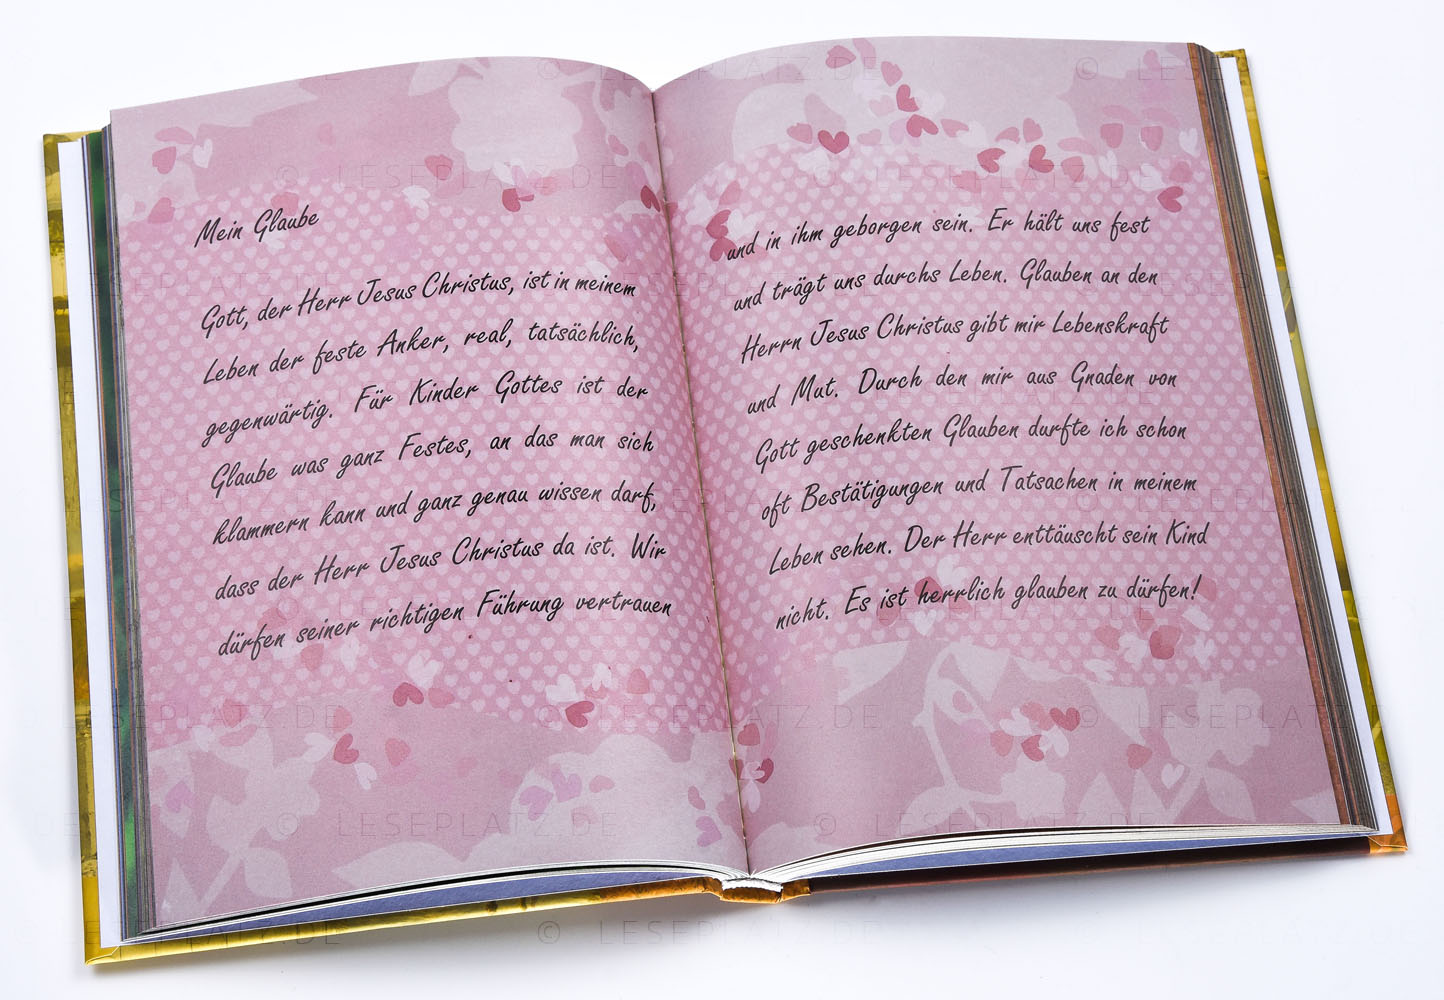 Mein Glaube
Gott, der Herr Jesus Christus, ist in meinem
Leben der feste Anker, real, tatsächlich,
gegenwärtig. Für Kinder Gottes ist der
Glaube was ganz Festes, an das man sich
klammern kann und ganz genau wissen darf,
dass der Herr Jesus Christus da ist. Wir
dürfen seiner richtigen Führung vertrauen
und in ihm geborgen sein. Er hält uns fest
und trägt uns durchs Leben. Glauben an den
Herrn Jesus Christus gibt mir Lebenskraft
und Mut. Durch den mir aus Gnaden von
Gott geschenkten Glauben durfte ich schon
oft Bestätigungen und Tatsachen in meinem
Leben sehen. Der Herr enttäuscht sein Kind
nicht. Es ist herrlich glauben zu dürfen!
© LESEPLATZ.DE